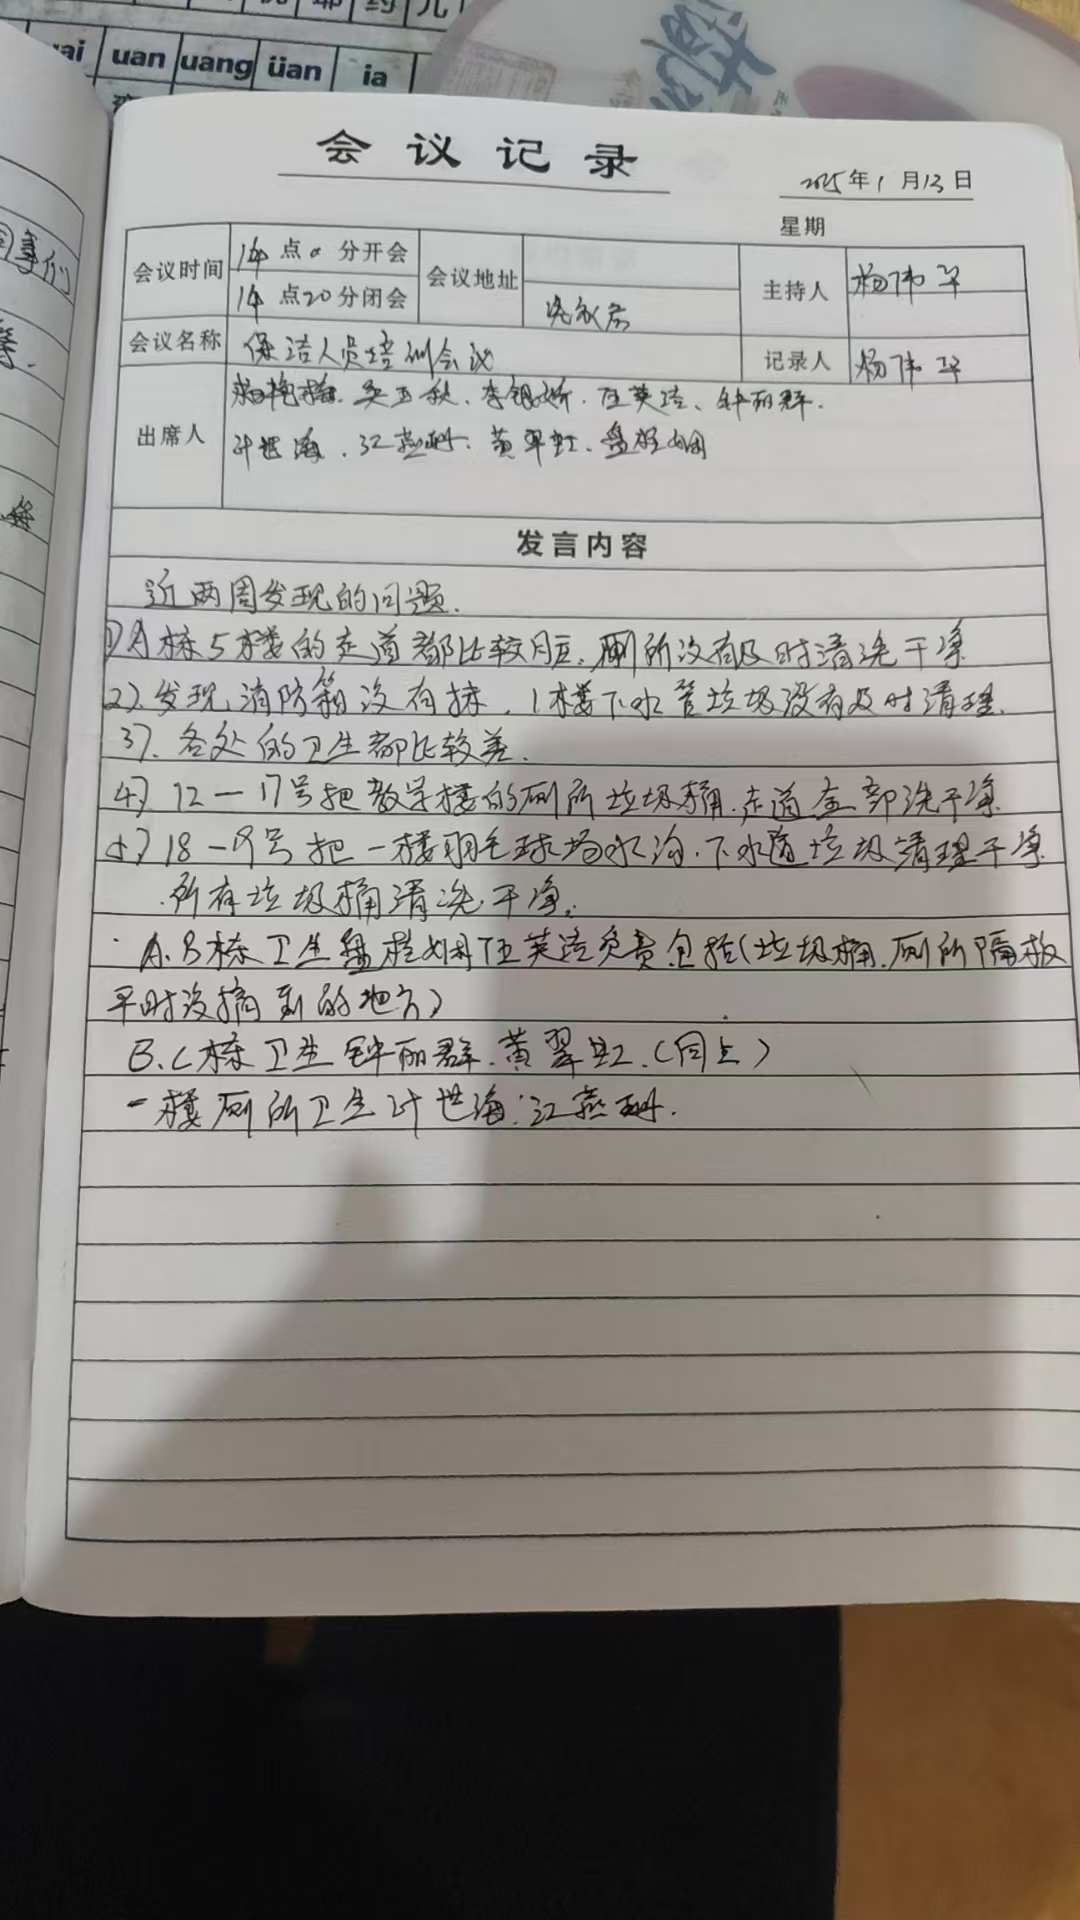 uan uang üan ia
会议记录
2025年1月13日
星期
会议时间 14点0分开会 会议地址 主持人 杨伟平
14点20分闭会 洗衣房
会议名称 保洁人员培训会议 记录人 杨伟平
出席人 杨艳梅、吴玉秋、李银娇、伍英洁、钟丽群、
叶世海、江燕珊、黄翠虹、盘桂姻
发言内容
近两周发现的问题.
1)A栋5楼的走道都比较脏,厕所没有及时清洗干净
2).发现消防箱没有抹,1楼下水管垃圾没有及时清理.
3).各处的卫生都比较差.
4)12一17号把教学楼的厕所垃圾桶.走道全部洗干净
5)18一19号把一楼羽毛球场水沟.下水道垃圾清理干净
所有垃圾桶清洗干净.
A.B栋卫生盘桂姻伍英洁负责包括(垃圾桶.厕所隔板
平时没搞到的地方)
B.C栋卫生钟丽群.黄翠虹.(同上)
一楼厕所卫生叶世海.江燕珊.